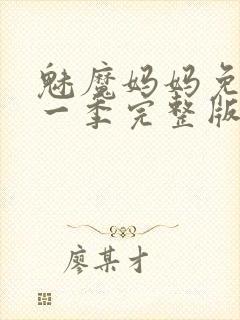 魅魔妈妈免
一季完整版
廖某才